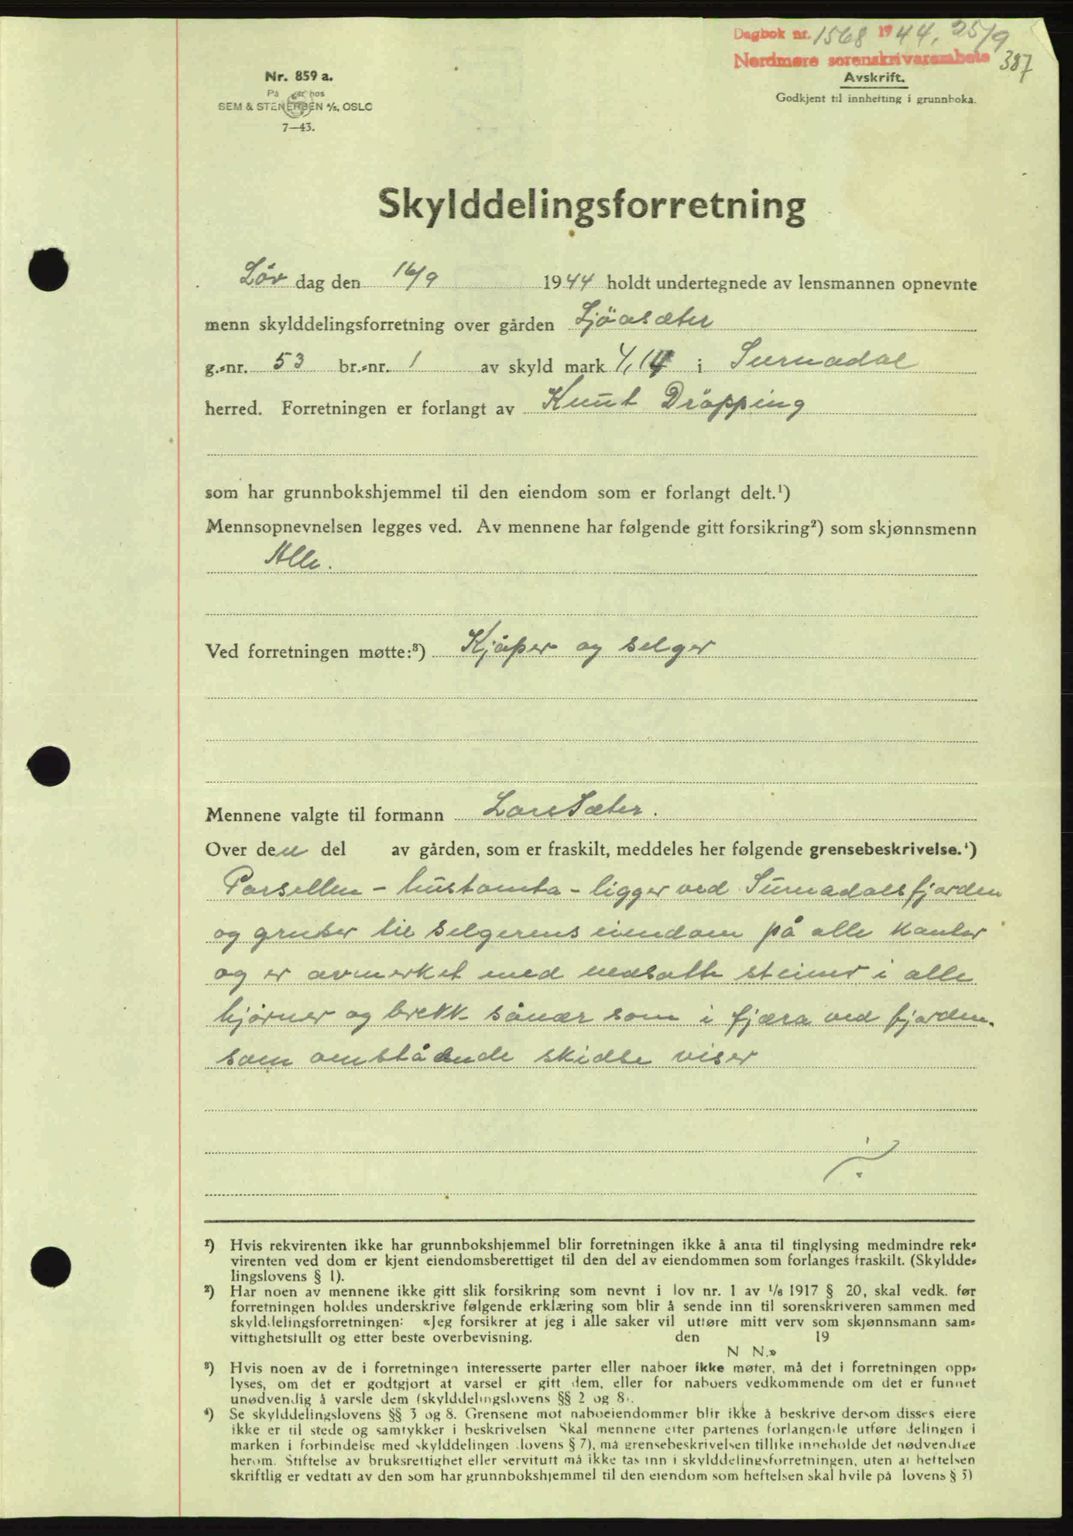 Dagbok nr. 1568 1944. 25/9
Nordmøre sorenskriverembete 387
Avskrift.
Godkjent til innhefting i grunnboka.
Nr. 859 a.
På hos
SEM & STENERSEN A/S, OSLO
7—43.
Skylddelingsforretning
Lør dag den 16/9 1944 holdt undertegnede av lensmannen opnevnte
menn skylddelingsforretning over gården Sjöasæter
g.-nr. 53 br.-nr. 1 av skyld mark 4,14 i Surnadal
herred. Forretningen er forlangt av Knut Dröpping
som har grunnbokshjemmel til den eiendom som er forlangt delt.¹)
Mennsopnevnelsen legges ved. Av mennene har følgende gitt forsikring²) som skjønnsmenn
Alle.
Ved forretningen møtte:³) Kjøper og selger
Mennene valgte til formann Lars Sæter.
Over den del av gården, som er fraskilt, meddeles her følgende grensebeskrivelse.⁴)
Parsellen - hustomta - ligger ved Surnadalsfjorden
og grenser til selgerens eiendom på alle kanter
og er avmerket med nedsatte steiner i alle
hjørner og brekk sånær som i fjæra ved fjorden.
som omstående skidse viser
¹) Hvis rekvirenten ikke har grunnbokshjemmel blir forretningen ikke å anta til tinglysing medmindre rek-
virenten ved dom er kjent eiendomsberettiget til den del av eiendommen som forlanges fraskilt. (Skyldde-
lingslovens § 1).
²) Har noen av mennene ikke gitt slik forsikring som nevnt i lov nr. 1 av 1/6 1917 § 20, skal vedk. før
forretningen holdes underskrive følgende erklæring som blir å sende inn til sorenskriveren sammen med
skylddelingsforretningen: «Jeg forsikrer at jeg i alle saker vil utføre mitt verv som skjønnsmann sam-
vittighetsfullt og etter beste overbevisning. den 19
N N.»
³) Hvis noen av de i forretningen interesserte parter eller naboer ikke møter, må det i forretningen opp-
lyses, om det er godtgjort at varsel er gitt dem, eller for naboers vedkommende om det er funnet
unødvendig å varsle dem (skylddelingslovens §§ 2 og 8).
⁴) Se skylddelingslovens §§ 3 og 8. Grensene mot naboeiendommer blir ikke å beskrive dersom disses eiere
ikke er til stede og samtykker i beskrivelsen Skal mennene etter partenes forlangende utføre delingen i
marken i forbindelse med skylddelingen (lovens § 7), må grensebeskrivelsen tillike inneholde det nødvendige
herom. Stiftelse av bruksrettighet eller servitutt må ikke tas inn i skylddelingsforretningen, uten at heftelsen
skriftlig er vedtatt av den som har grunnbokshjemmel til den eiendom som heftelsen skal hvile på lovens § 3)